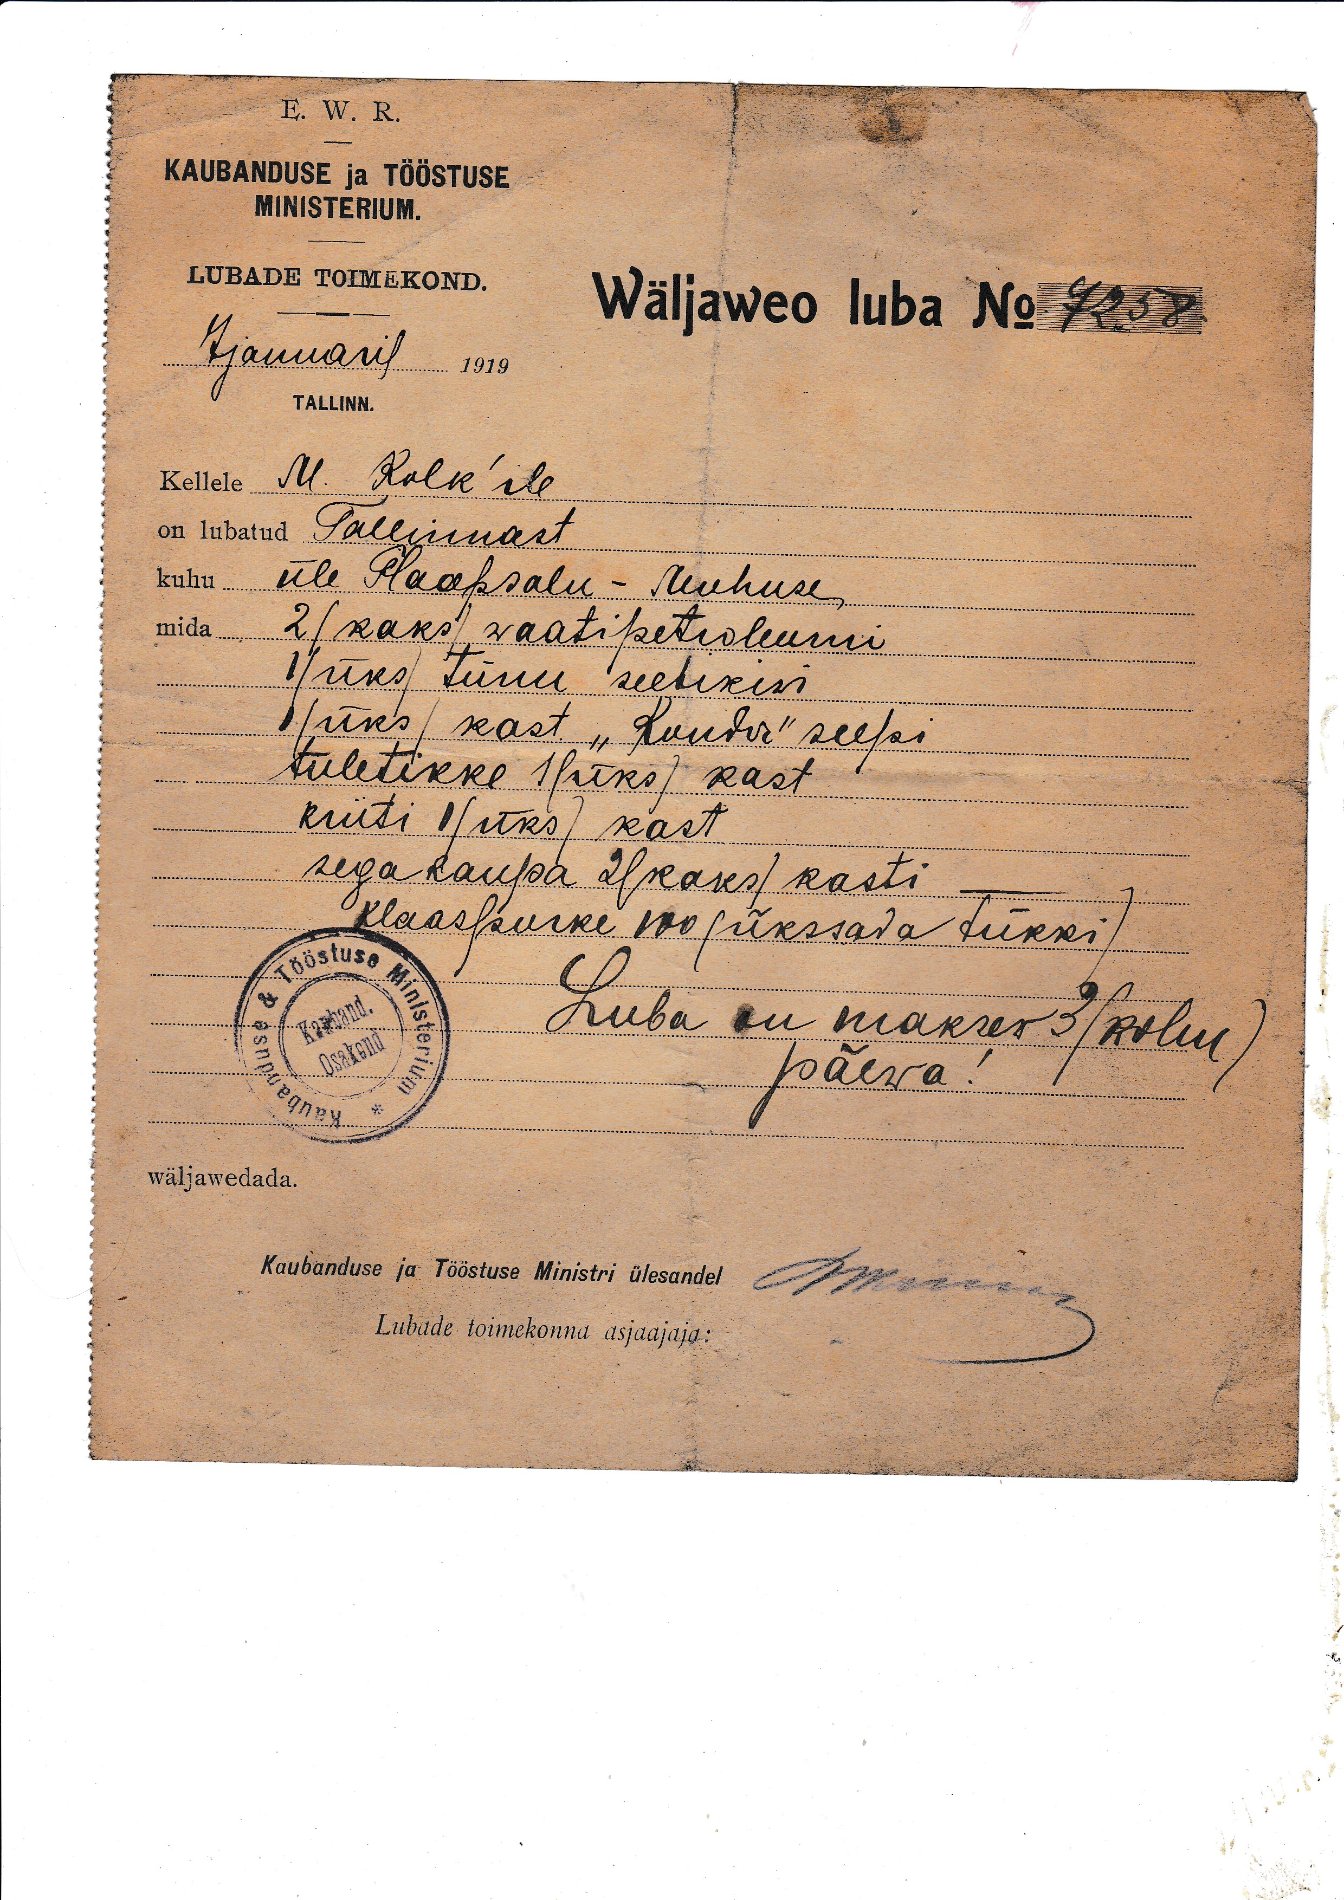 E. W. R.
KAUBANDUSE ja TÖÖSTUSE
MINISTERIUM.
LUBADE TOIMEKOND.
Wäljaweo luba № 7258
7 januaril 1919
TALLINN.
Kellele M. Kolk'ile
on lubatud Tallinnast
kuhu üle Haapsalu - Muhusse,
mida 2 /kaks/ waati petroleumi
1 /üks/ tünn seebikiwi
1 /üks/ kast „Kondor" seepi
tuletikke 1 /üks/ kast
kriiti 1 /üks/ kast
segakaupa 2 /kaks/ kasti
klaaspurke 100 /ükssada tükki/
Luba on maksew 3 /kolm/
päewa!
Kaubanduse & Tööstuse Ministerium *
Kauband.
Osakond
wäljawedada.
Kaubanduse ja Tööstuse Ministri ülesandel
Lubade toimekonna asjaajaja: